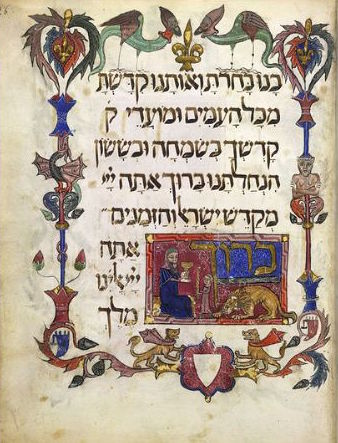 בנו בחרת ואותנו קדשת
מכל העמים ומועדי ק
קדשך בשמחה ובששון
הנחלתנו ברוך אתה ייי
מקדש ישראל והזמנים
ברוך
אתה
ייי אלהינו
מלך